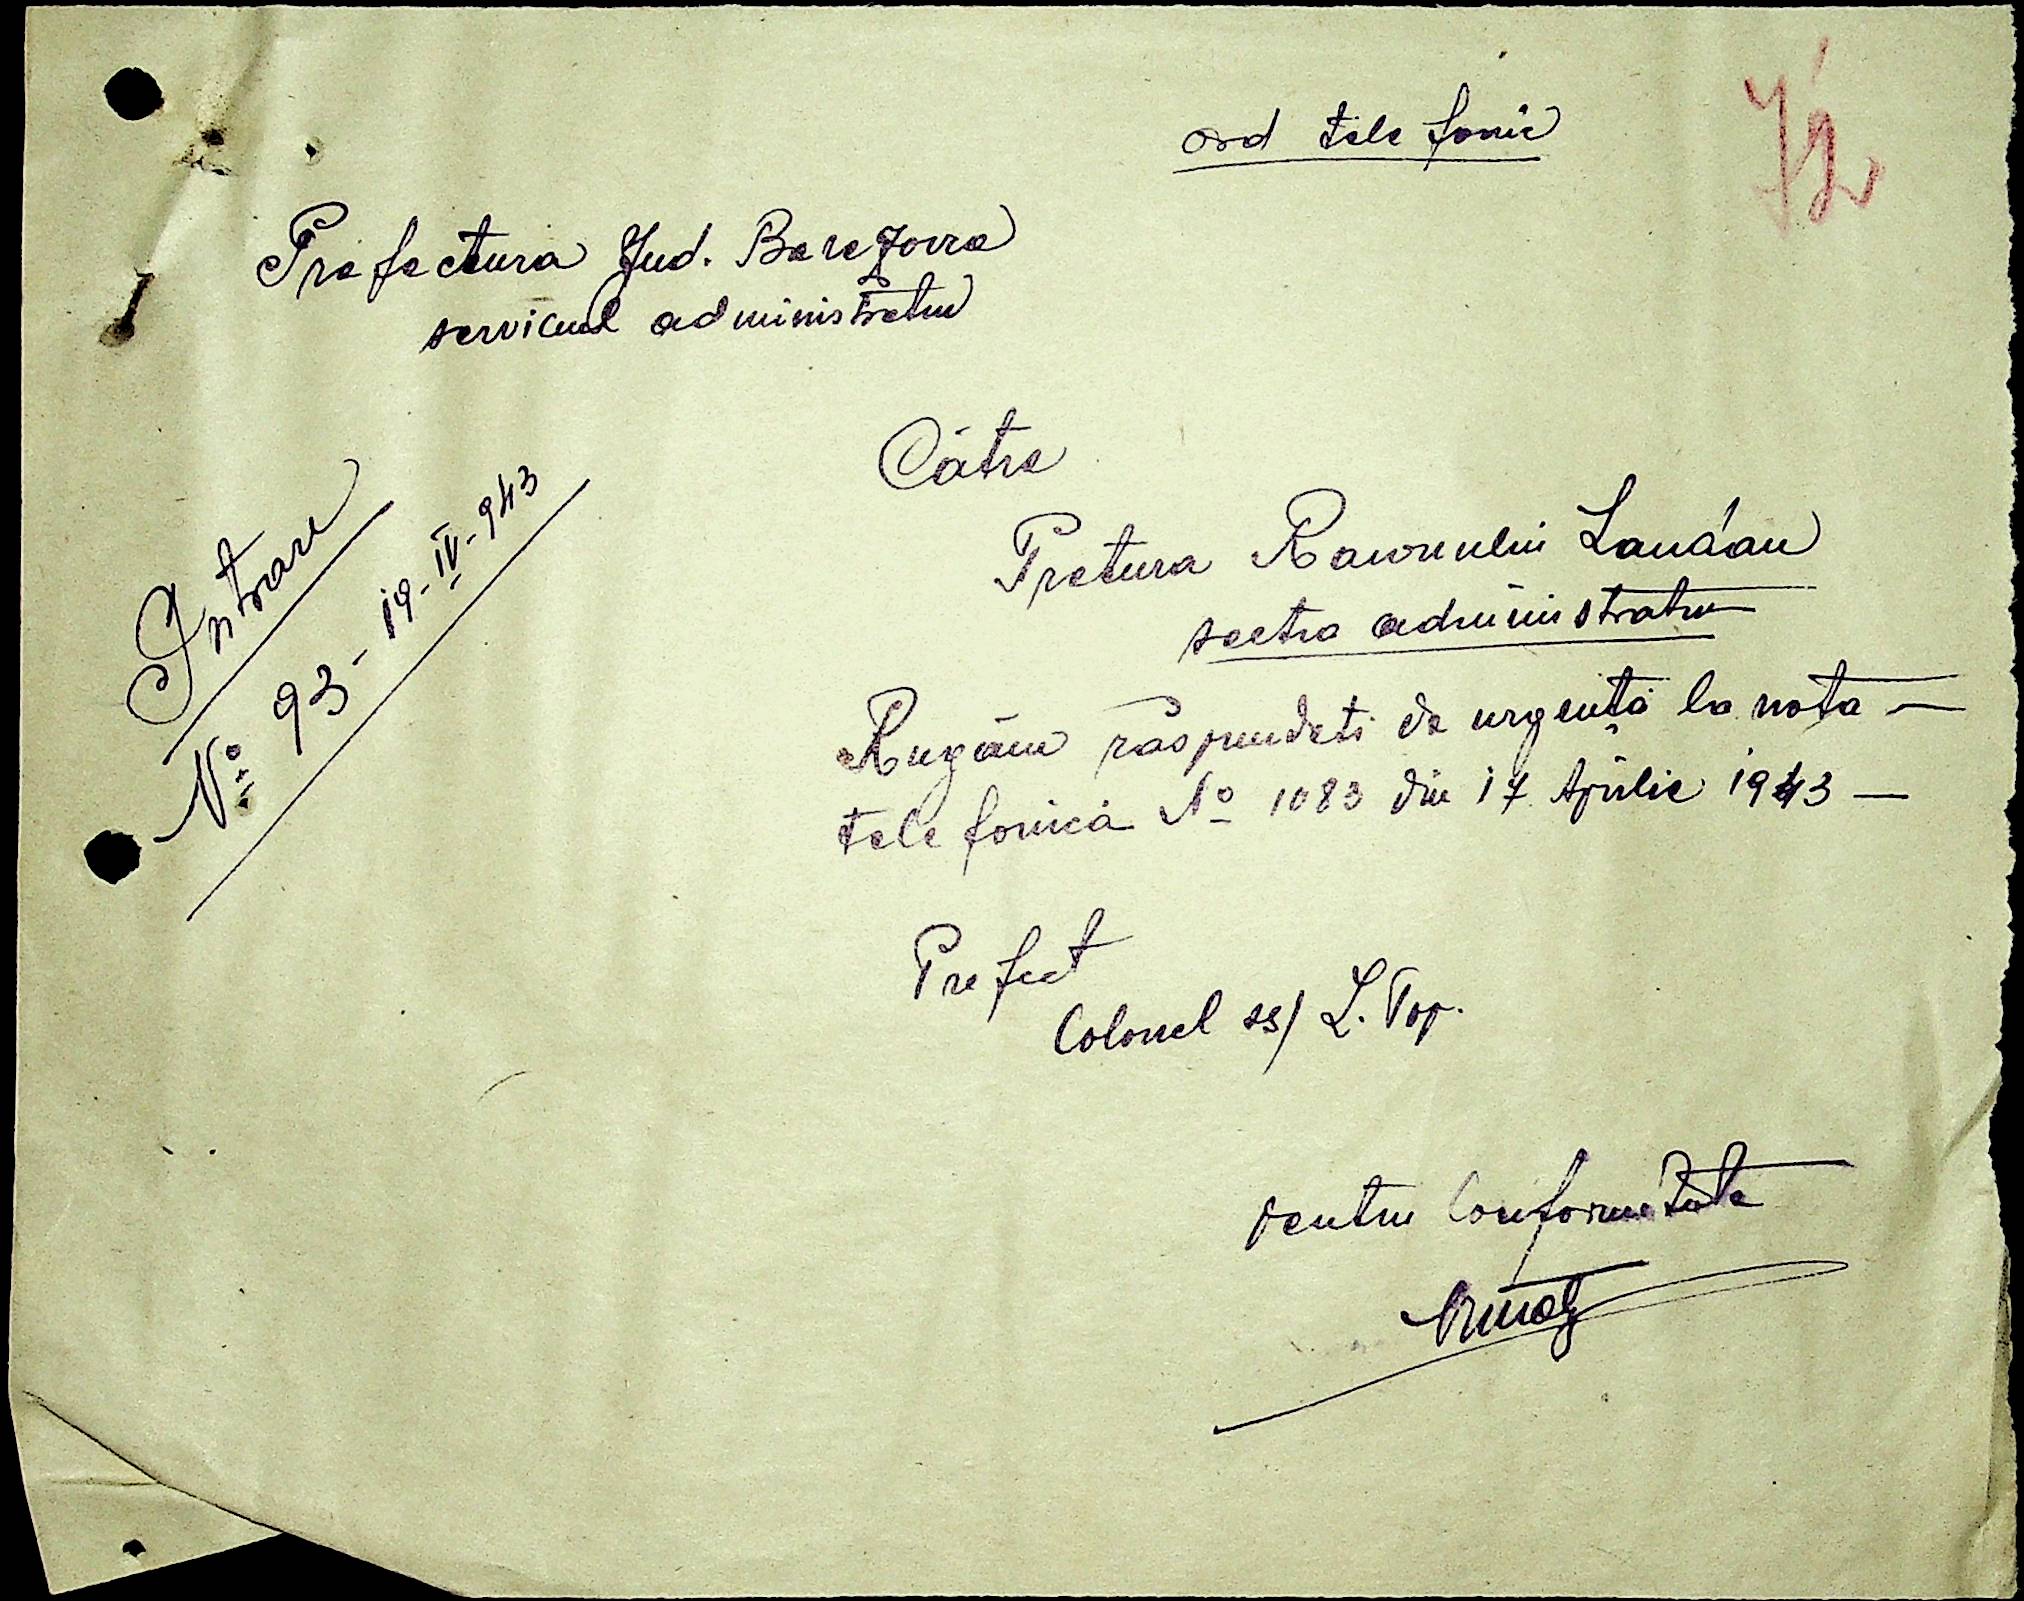 Ord telefonic
Prefectura Jud. Berezovca
serviciul administrativ
Intrare
No 93 - 19 - IV - 943
Către
Pretura Raionului Landau
sectia administrativ
Rugăm răspundeti de urgență la nota —
telefonică No 1083 din 17 Aprilie 1943 —
Prefect
Colonel ss/ L. Pop.
pentru Conformitate